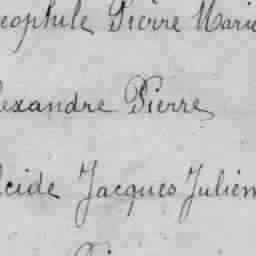 eophile Pierre Marie
exandre Pierre
lcide Jacques Julien